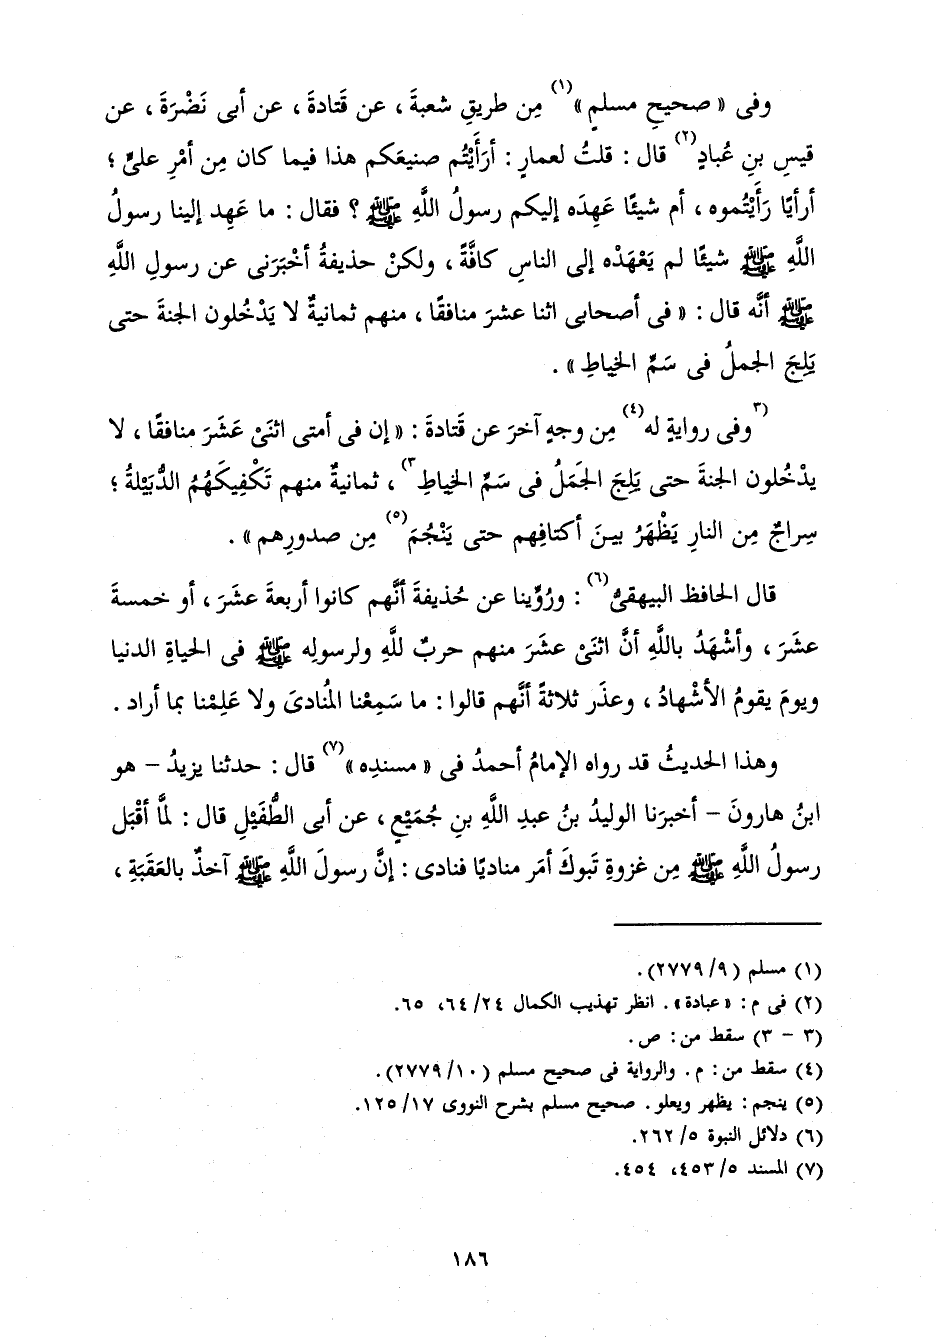 وفى « صحيحِ مسلمٍ »(١) مِن طريقِ شعبةَ ، عن قَتادةَ ، عن أبى نَضْرَةَ ، عن
قيسِ بنِ عُبادٍ(٢) قال : قلتُ لعمارٍ : أرَأَيْتُم صنيعَكم هذا فيما كان مِن أمْرِ علىٍّ ؛
أرأيًا رَأَيْتُموه ، أم شيئًا عَهِدَه إليكم رسولُ اللَّهِ ﷺ ؟ فقال : ما عَهِد إلينا رسولُ
اللَّهِ ﷺ شيئًا لم يَعْهَدْه إلى الناسِ كافَّةً ، ولكنْ حذيفةُ أخْبَرَنى عن رسولِ اللَّهِ
ﷺ أنَّه قال : « فى أصحابى اثنا عشرَ منافقًا ، منهم ثمانيةٌ لا يَدْخُلون الجنةَ حتى
يَلِجَ الجملُ فى سَمِّ الخياطِ » .
(٣وفى روايةٍ له(٤) مِن وجهٍ آخرَ عن قَتادةَ : « إن فى أمتى اثنَىْ عَشَرَ منافقًا ، لا
يدْخُلون الجنةَ حتى يَلِجَ الجَمَلُ فى سَمِّ الخِياطِ٣) ، ثمانيةٌ منهم تَكْفِيكَهُمُ الدُّبَيْلةُ ؛
سِراجٌ مِن النارِ يَظْهَرُ بينَ أكتافِهم حتى يَنْجُمَ(٥) مِن صدورِهم » .
قال الحافظ البيهقىُّ(٦) : ورُوِّينا عن حُذيفةَ أنَّهم كانوا أربعةَ عشَرَ ، أو خمسةَ
عشَرَ ، وأشْهَدُ باللَّهِ أنَّ اثنَىْ عشَرَ منهم حربٌ للَّهِ ولرسولِه ﷺ فى الحياةِ الدنيا
ويومَ يقومُ الأشْهادُ ، وعذَر ثلاثةً أنَّهم قالوا : ما سَمِعْنا المُنادىَ ولا عَلِمْنا بما أراد .
وهذا الحديثُ قد رواه الإمامُ أحمدُ فى « مسندِه »(٧) قال : حدثنا يزيدُ – هو
ابنُ هارونَ – أخبرَنا الوليدُ بنُ عبدِ اللَّهِ بنِ جُمَيْعٍ ، عن أبى الطُّفَيْلِ قال : لمَّا أقْبَل
رسولُ اللَّهِ ﷺ مِن غزوةِ تَبوكَ أمَر مناديًا فنادى : إنَّ رسولَ اللَّهِ ﷺ آخذٌ بالعَقَبَةِ ،
(١) مسلم (٢٧٧٩/٩).
(٢) فى م : « عبادة » . انظر تهذيب الكمال ٢٤/ ٦٤، ٦٥.
(٣ – ٣) سقط من : ص .
(٤) سقط من : م . والرواية فى صحيح مسلم (٢٧٧٩/١٠).
(٥) ينجم : يظهر ويعلو . صحيح مسلم بشرح النووى ١٧/ ١٢٥.
(٦) دلائل النبوة ٥/ ٢٦٢.
(٧) المسند ٥/ ٤٥٣، ٤٥٤.
١٨٦